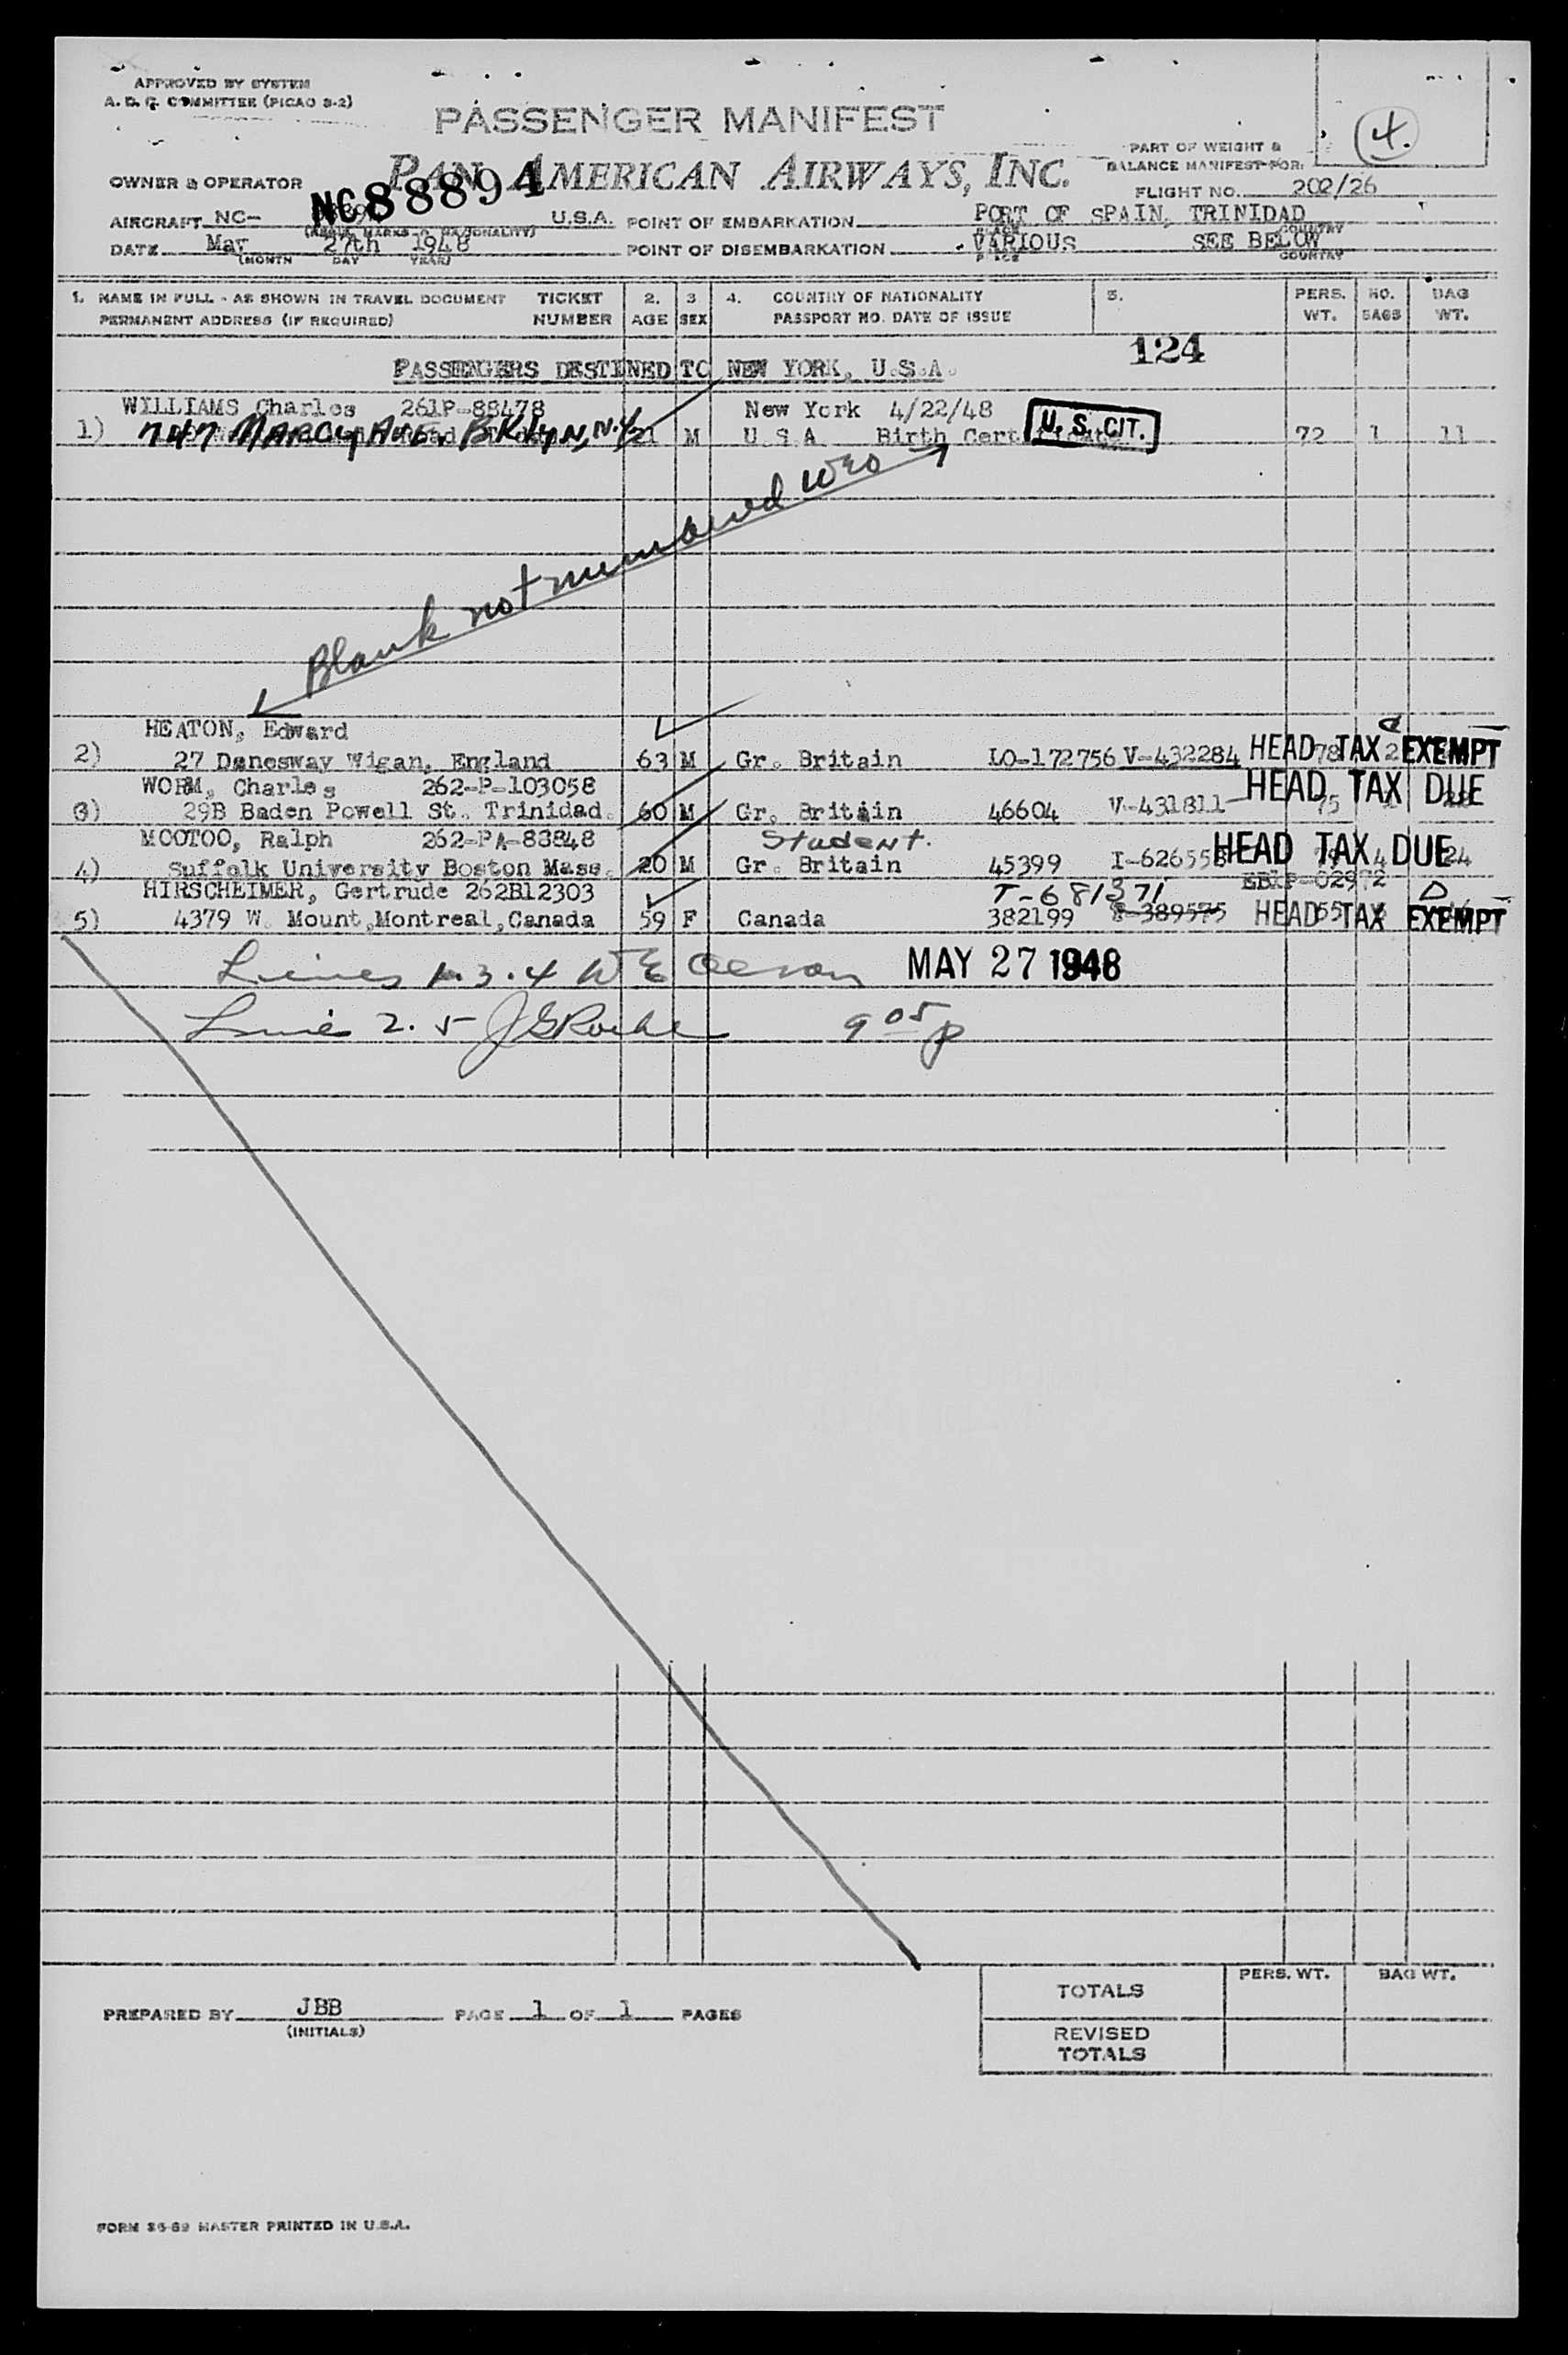 APPROVED BY SYSTEM
A. D. G. COMMITTEE (PICAO 8-2)
PASSENGER MANIFEST
4.
PART OF WEIGHT &
BALANCE MANIFEST FOR:
OWNER & OPERATOR PAN AMERICAN AIRWAYS, INC.
FLIGHT NO. 202/26
AIRCRAFT NC- NC88894 U.S.A. POINT OF EMBARKATION PORT OF SPAIN, TRINIDAD
PLACE COUNTRY
DATE May 27th 1948 POINT OF DISEMBARKATION VARIOUS SEE BELOW
(MONTH DAY YEAR) PLACE COUNTRY
1. NAME IN FULL - AS SHOWN IN TRAVEL DOCUMENT TICKET 2. 3 4. COUNTRY OF NATIONALITY 5. PERS. NO. BAG
PERMANENT ADDRESS (IF REQUIRED) NUMBER AGE SEX PASSPORT NO. DATE OF ISSUE WT. BAGS WT.
124
PASSENGERS DESTINED TO NEW YORK, U.S.A.
WILLIAMS Charles 261P-88478 New York 4/22/48
1) 747 MARCY AVE. BKLYN, N.Y. 21 M U.S.A. Birth Certificate U.S. CIT. 72 1 11
Blank not numbered WEO
HEATON, Edward
2) 27 Danesway Wigan, England 63 M Gr. Britain LO-172756 V-432284 HEAD TAX EXEMPT 78 2
WORM, Charles 262-P-103058
3) 29B Baden Powell St. Trinidad. 60 M Gr. Britain 46604 V-431811 HEAD TAX DUE 75
MOOTOO, Ralph 262-PA-88848 Student.
4) Suffolk University Boston Mass. 20 M Gr. Britain 45399 I-626558 HEAD TAX DUE 4 24
HIRSCHEIMER, Gertrude 262B12303 T-681371
5) 4379 W. Mount, Montreal, Canada 59 F Canada 382199 HEAD TAX EXEMPT 55
Lines 1.3.4 WE MAY 27 1948
Line 2.5 JGRoche 9 05 p
PREPARED BY JBB PAGE 1 OF 1 PAGES
(INITIALS)
PERS. WT. BAG WT.
TOTALS
REVISED
TOTALS
FORM 36-69 MASTER PRINTED IN U.S.A.